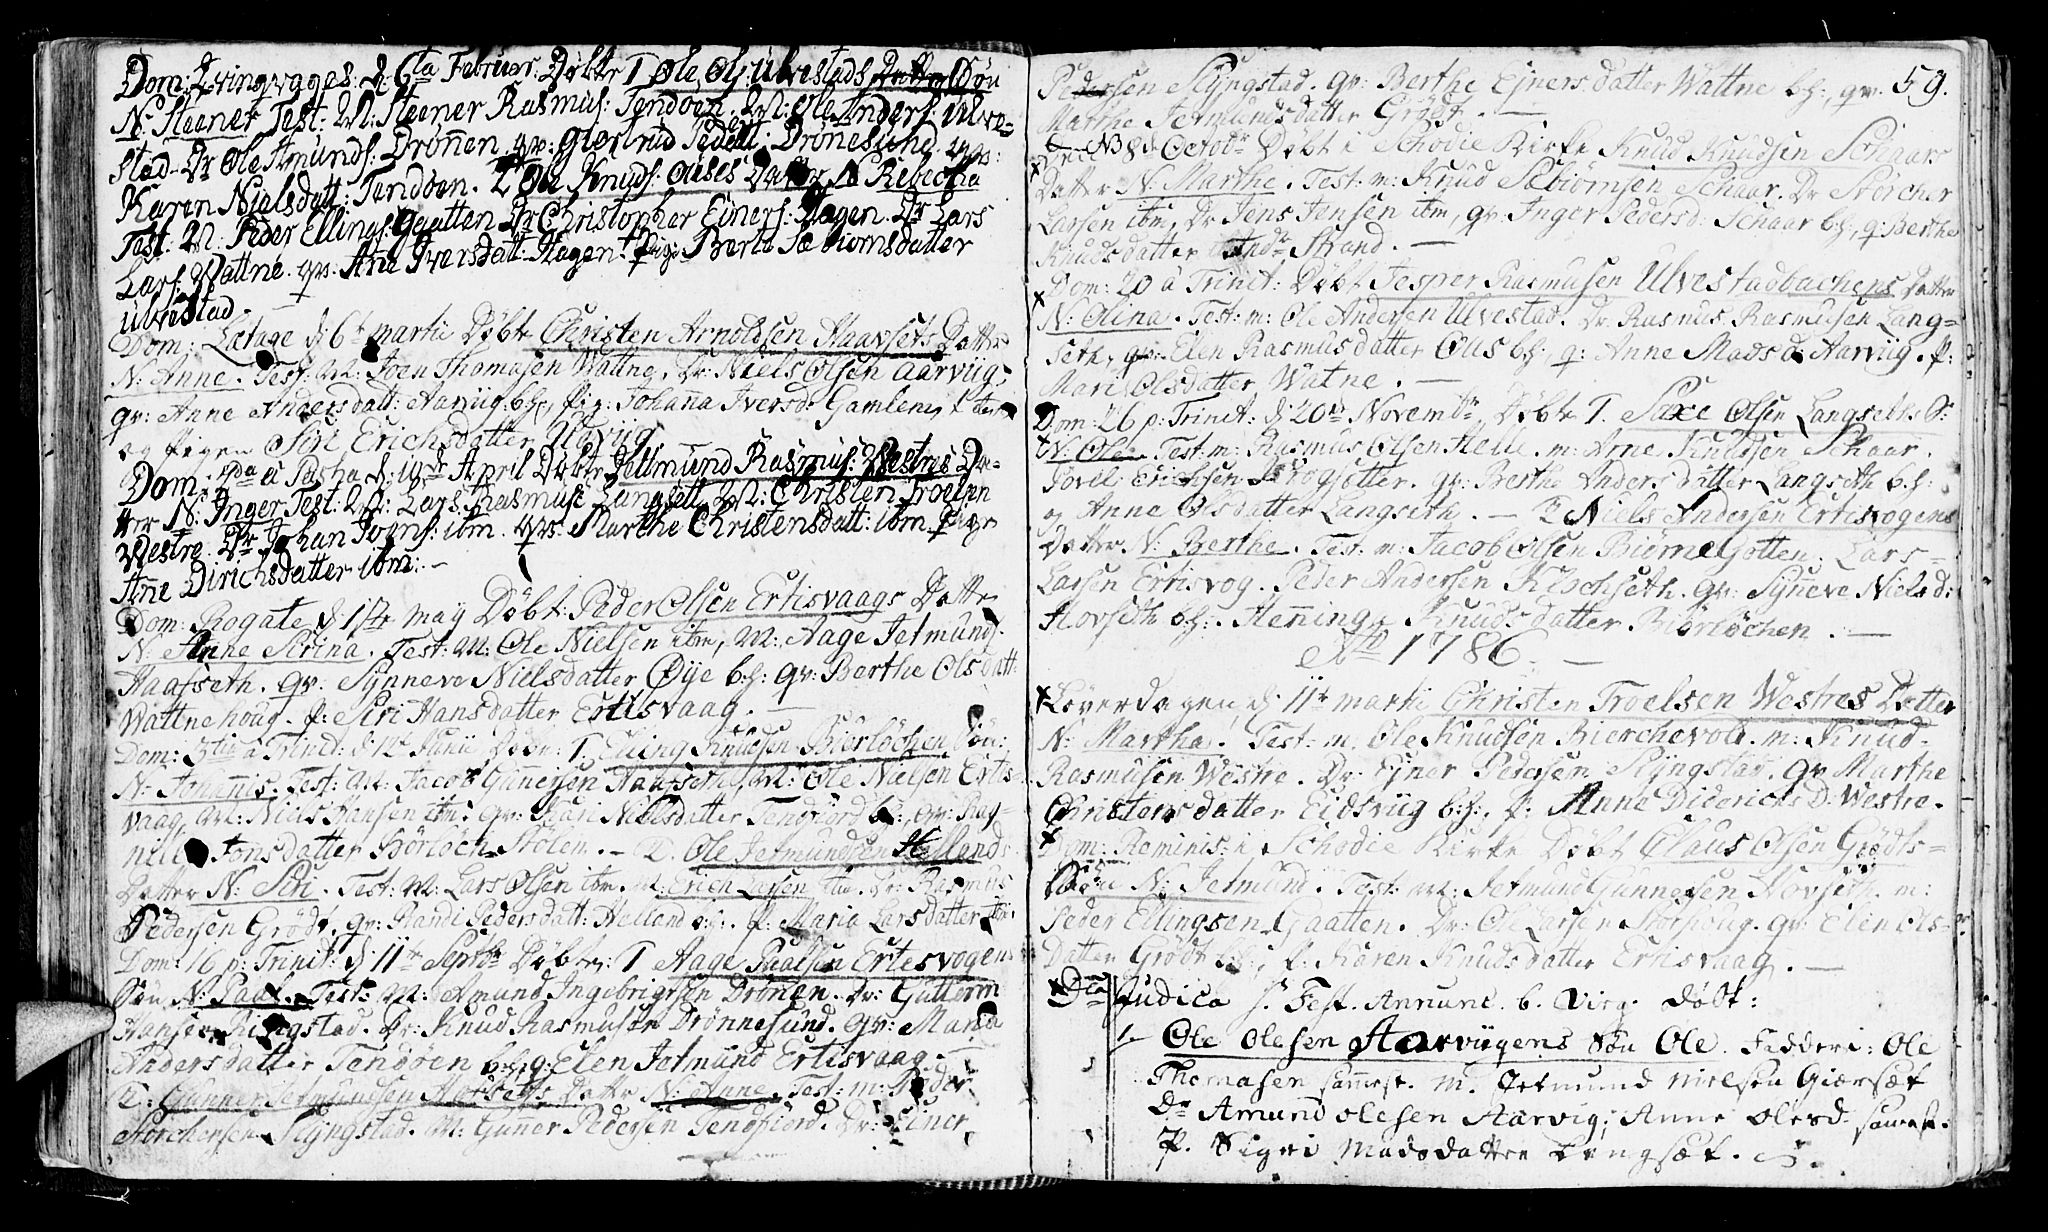 Dom: Qvinqvages: d. 6ta Februar: Døbt T Ole Ols: Ulvestads Søn
N: Steener Test: M: Steener Rasmus: Tendøen. M: Ole Anders: Ulve-
stad. Dr Ole Amunds: Drønen. qv: Giørtrud Peders: Drønesund. qv:
Karen Nielsdatt: Tendøen. 2 Ole Knuds: Ouses Datter N Rebecha
Test: M: Peder Ellings: Gaatten Dr Christopher Einers: Hagen. Dr Lars
Lars: Wattne. qv: Ane Iversdatt: Hagen. pige Berte Sæbiørnsdatter
Ulvestad.
Dom: Lætare d: 6t martii Døbt Christen Arnoldsen Haavsets Datter
N: Anne. Test: M: Joen Thomasen Wattne, Dr: Niels Olsen Aarviig,
qv: Anne Andersdatt: Aarviig b:h:, pig: Johanna Iversd: Gamlem,
og pigen Siri Erichsdatter Ulsviig.
Dom: 2da a Pascha d: 10de April Døbt Jettmund Rasmus: Westres Da-
tter N: Inger Test: M: Lars Rasmus: Langsett M: Christen Troelsn
Westre Dr Johan Joens: ibm. qv: Marthe Christensdatt: ibm pige
Anne Dirichsdatter ibm: -
Dom: Rogate d 1ste may Døbt: Peder Olsen Ertisvaags Datter
N: Anne Sirina. Test: M: Ole Nielsen ibm, M: Aage Jetmunds:
Haafseth. qv: Synneve Nielsdatter Øye b:h: qv: Berthe Olsdatt:
Wattnehoug. p: Siri Hansdatter Ertisvaag. -
Dom: 3tia a Trinit: d 12t Junii Døbt: 1. Elling Knudsen Bierløchen Søn:
N: Johannis. Test: M: Jacob Gunersen Haafseth, M: Ole Nielsen Ertis-
vaag, M: Niels Hansen ibm: qv: Kari Nielsdatter Tendfiord b:h:, qv: Rag-
nill Jonsdatter Børløch Stølen. - 2. Ole Jetmundsen Hellands
Datter N: Siri. Test: M: Lars Olsen ibm. M: Erich Larsen ibm. Dr: Rasmus
Pedersen Grødt, qv: Randi Pedersdatt: Helland b:h:. p: Maria Larsdatter ibm:
Dom: 16 p: Trinit: d 11te Septbr Døbt: 1 Aage Paalsen Ertesvogens
Søn N: Paal. Test: M: Amund Ingebrigtsen Drønen. Dr: Guttorm
Hansen Ringstad. Dr: Knud Rasmusen Drønnesund. qv: Maria
Andersdatter Tendøen b:h: q: Elen Jetmund Ertisvaag. -
2: Gunner Jetmundsen Hafsets Datter N: Anne. Test: m: Peder
Storchersen Slyngstad. M: Guner Pedersen Tendfiord. Dr: Einer
59.
Pedersen Slyngstad. qv: Berthe Ejnersdatter Wattne b:h:, qv:
Marthe Jetmundsdatter Grødt. -
den 8de Octobr Døbt i Schodie Kirke Knud Knudsen Schaars
Datter N: Marthe. Test: m: Knud Sæbiørnsen Schaar. Dr Størcher
Larsen ibm, Dr Jens Jensen ibm, qv: Inger Pedersd: Schaar b:h:, q: Berthe
Knudsdatter Strand. -
Dom: 20 a Trinit: Døbt Jesper Rasmusen Ulvestadbachens Datter
N: Olina. Test: m: Ole Andersen Ulvestad. Dr. Rasmus Rasmusen Lang-
seth, qv: Elen Rasmusdatter Ous b:h:, q: Anne Madsd: Aarviig. p:
Mari Olsdatter Watne. -
Dom: 26 p: Trinit: d 20de Novembr, Døbt 1. Saxe Olsen Langseths S:
N: Ole. Test: m: Rasmus Olsen Helle. m: Arne Knudsen Schaar.
Povel Erichsen Krogsjotter. qv: Berthe Andersdatter Langseth b:h:
og Anne Olsdatter Langseth. - 2 Niels Andersen Ertisvogens
Datter N: Berthe. Test: m: Jacob Olsen Biørnejotten, Lars
Larsen Ertisvog. Peder Andersen Kirchseth. qv: Synneve Nielsd:
Hovseth b:h:. Henning Knudsdatter Biørløchen. -
Ao 1786. -
Løverdagen d 11te martii Christen Troelsen Westres Datter
N: Martha. Test: m. Ole Knudsen Kierchevold. m: Knud
Rasmusen Westre. Dr: Ejner Pedersen Slyngstad. qv Marthe
Christensdatter Eidsviig b:h:, p: Anne Diderichs D: Westre.
Dom: Reminis: i Schodie Kirke Døbt Claus Olsen Grødts-
Søn N: Jetmund. Test: M: Jetmund Gunnersen Hovseth. m:
Peder Ellingsen Gaatten. Dr: Ole Larsen Storhoug. qv: Elen Ols-
Datter Grødt b:h:, p: Karen Knudsdatter Ertisvaag. -
Dca Judica s. Fest. Annunt. b. Virg. døbt:
1. Ole Olesen Aarviigens Søn Ole. Fadderi: Ole
Thomasen samest. m. Jetmund Nielsen Giærset
Dr Amund Olesen Aarvig; Anne Olesd samest.
P. Sigri Madsdatter Langset.